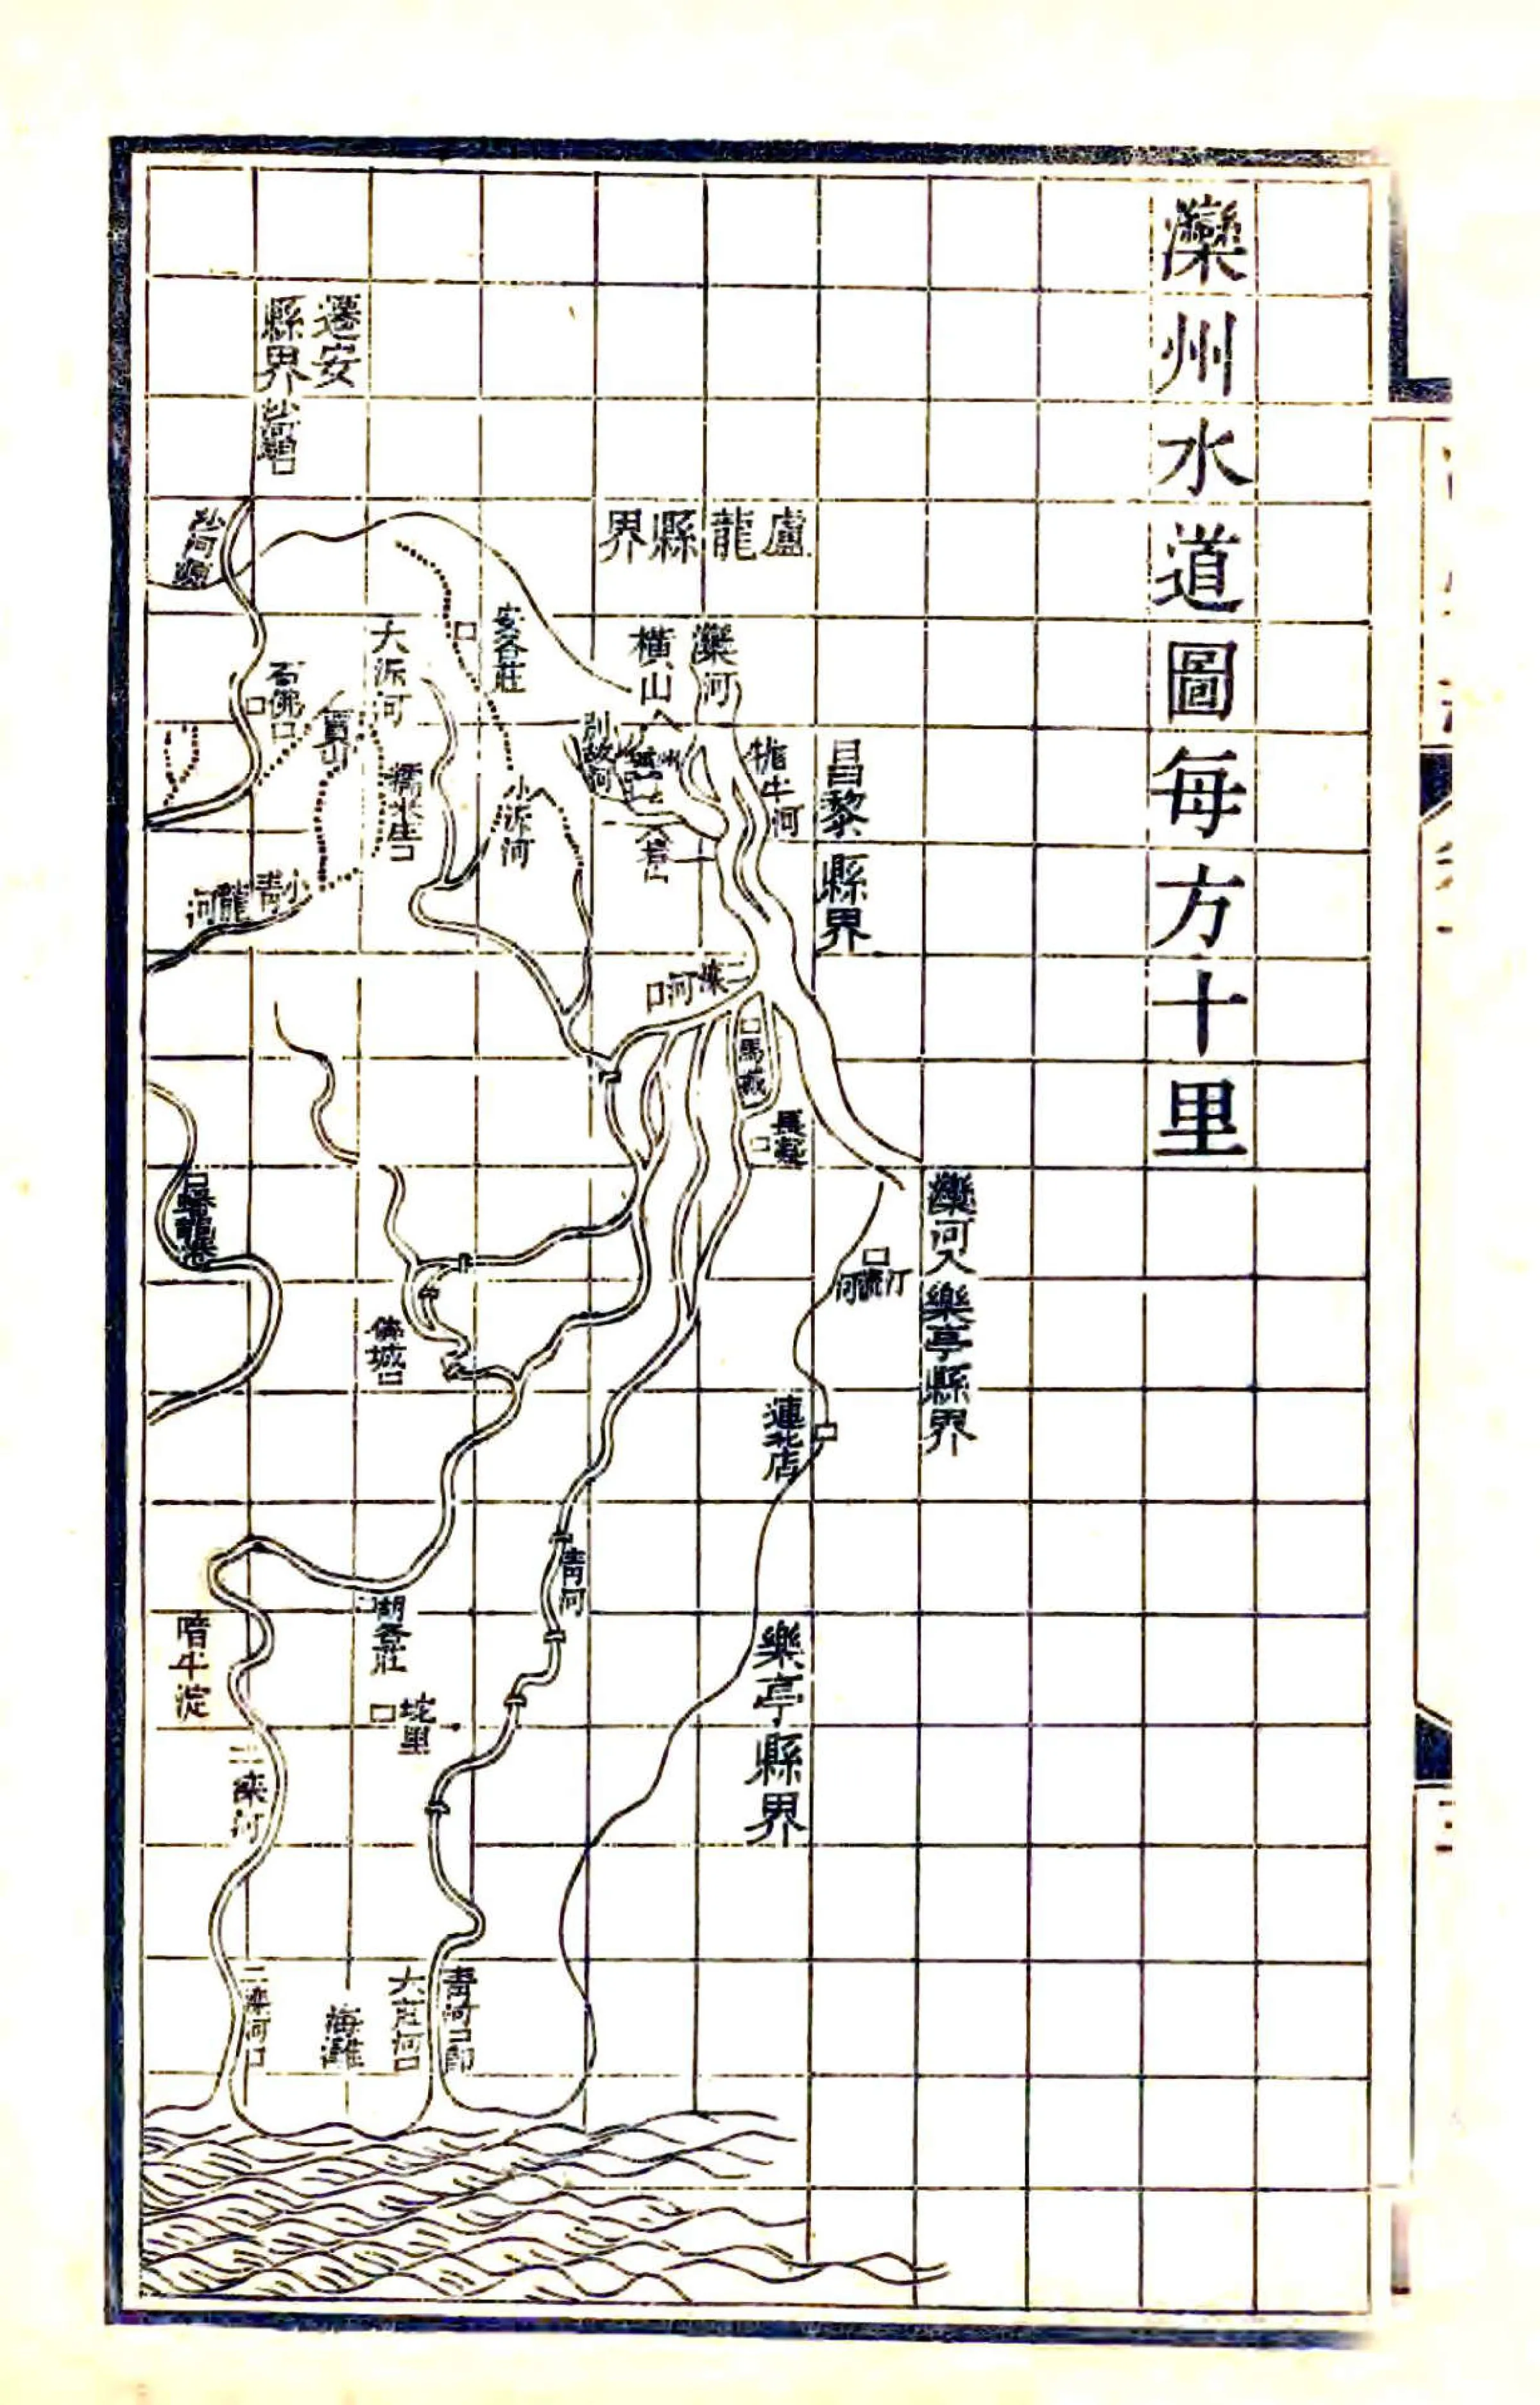 灤州水道圖每方十里
遷安
縣界
沙河
盧龍縣界
灤河
橫山
安各莊
大泝河
石佛口
別故河
牤牛河
昌黎縣界
小泝河
小青龍河
二灤河口
馬城
長凝
灤河入樂亭縣界
汀流河
倴城
蓮北店
青河
湖各莊
坨里
暗牛淀
樂亭縣界
二灤河
青河口卽
大庄河口
海灘
二灤河口